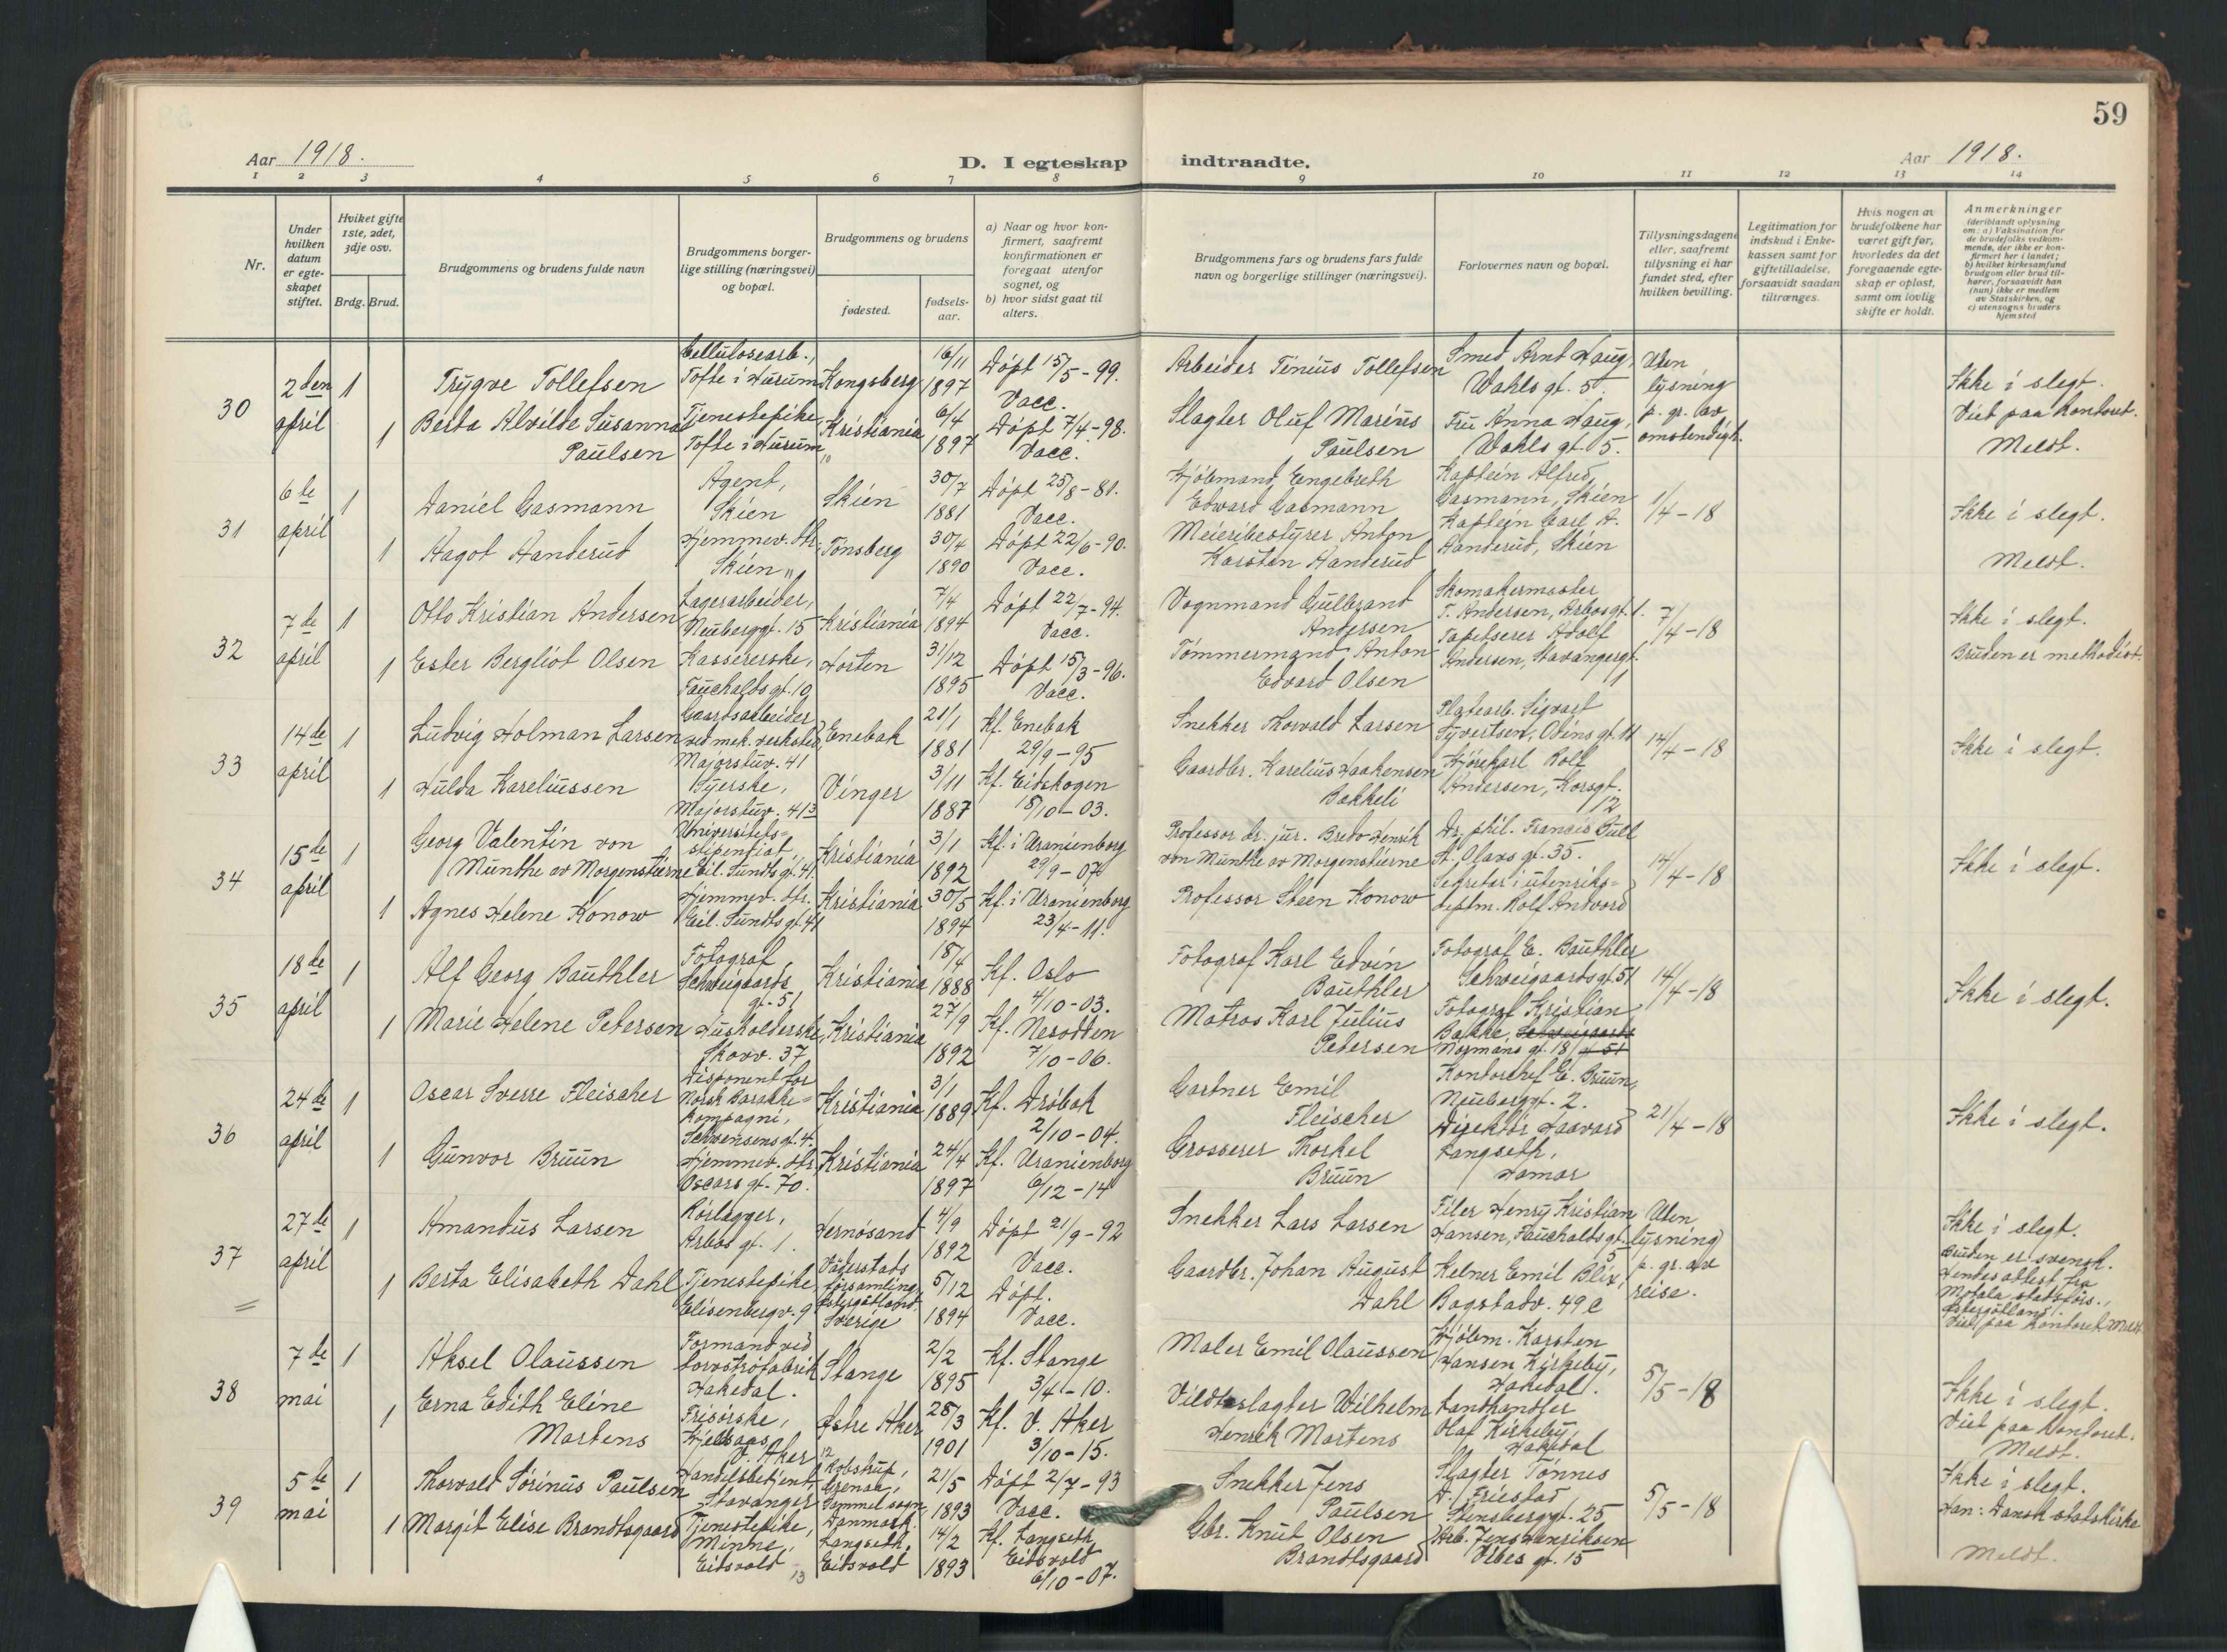 59
Aar 1918.
D. I egteskap indtraadte.
Aar 1918.
1 2 3 4 5 6 7 8 9 10 11 12 13 14
Nr.
Under hvilken datum er egteskapet stiftet.
Hvilket gifte 1ste, 2det, 3dje osv.
Brdg. Brud.
Brudgommens og brudens fulde navn
Brudgommens borgerlige stilling (næringsvei) og bopæl.
Brudgommens og brudens
fødested.
fødselsaar.
a) Naar og hvor konfirmert, saafremt konfirmationen er foregaat utenfor sognet, og
b) hvor sidst gaat til alters.
Brudgommens fars og brudens fars fulde navn og borgerlige stillinger (næringsvei).
Forlovernes navn og bopæl.
Tillysningsdagene eller, saafremt tillysning ei har fundet sted, efter hvilken bevilling.
Legitimation for indskud i Enkekassen samt for giftetilladelse, forsaavidt saadan tiltrænges.
Hvis nogen av brudefolkene har været gift før, hvorledes da det foregaaende egteskap er opløst, samt om lovlig skifte er holdt.
Anmerkninger (deriblandt oplysning om: a) Vaksination for de brudefolks vedkommende, der ikke er konfirmert her i landet; b) hvilket kirkesamfund brudgom eller brud tilhører, forsaavidt han (hun) ikke er medlem av Statskirken, og c) utensogns bruders hjemsted
30
2den april
1
Trygve Tollefsen
Cellulosearb., Tofte i Hurum
Kongsberg
16/11 1897
Døpt 15/5-99. Vacc.
Arbeider Tinius Tollefsen
Smed Arnt Haug, Wahls gt. 5.
Uten lysning p. gr. av omstendigh.
Ikke i slegt. Viet paa kontoret. Meldt.
1
Berta Alvilde Susanna Paulsen
Tjenestepike, Tofte i Hurum
Kristiania
6/4 1897
Døpt 7/4-98. Vacc.
Slagter Oluf Marius Paulsen
Fru Anna Haug, Wahls gt. 5.
31
6te april
1
Daniel Gasmann
Agent, Skien
Skien
30/7 1881
Døpt 25/8-81. Vacc.
Kjøbmand Engebreth Edward Gasmann
Kaptein Alfred Gasmann, Skien
1/4-18
Ikke i slegt. Meldt.
1
Hagot Handerud
Hjemmev. dtr., Skien
Tønsberg
30/4 1890
Døpt 22/6-90. Vacc.
Meieribestyrer Anton Karsten Handerud
Kaptein Carl A. Handerud, Skien
32
7de april
1
Otto Kristian Andersen
Lagerarbeider, Neuberggt. 15
Kristiania
7/4 1894
Døpt 22/7-94. Vacc.
Vognmand Gulbrand Andersen
Skomakermester T. Andersen, Arbosgt. 1.
7/4-18
Ikke i slegt. Bruden er methodist.
1
Ester Bergliot Olsen
Kassererske, Fauchaldsgt. 10
Horten
31/12 1895
Døpt 15/3-96. Vacc.
Tømmermand Anton Edvard Olsen
Tapetserer Adolf Andersen, Stavangergt. 1
33
14de april
1
Ludvig Holman Larsen
Gaardsarbeider ved mek. verksted, Majorstuv. 41
Enebak
21/1 1881
Kf. Enebak 29/9-95
Snekker Thorvald Larsen
Platearb. Sigvart Syvertsen, Odins gt. 11
14/4-18
Ikke i slegt.
1
Hulda Kareliussen
Syerske, Majorstuv. 41 3
Vinger
3/11 1887
Kf. Eidskogen 18/10-03.
Gaardbr. Karelius Haakensen Bakkeli
Kjørekarl Rolf Andersen, Korsgt. 12
34
15de april
1
Georg Valentin von Munthe av Morgenstierne
Universitetsstipentiat, Eil. Sundtsgt. 41.
Kristiania
3/1 1892
Kf. i Uranienborg 29/9-07
Professor dr. jur. Bredo Henrik von Munthe av Morgenstierne
Dr. phil. Francis Bull St. Olavs gt. 35.
14/4-18
Ikke i slegt.
1
Agnes Helene Konow
Hjemmev. dtr. Eil. Sundtsgt. 41
Kristiania
30/5 1894
Kf. i Uranienborg 23/4-11.
Professor Steen Konow
Sekretær i utenriksdeptm. Rolf Andvord
35
18de april
1
Alf Georg Bauthler
Fotograf Schweigaards gt. 51
Kristiania
18/4 1888
Kf. Oslo 4/10-03.
Fotograf Karl Edvin Bauthler
Fotograf E. Bauthler Schweigaardsgt. 51
14/4-18
Ikke i slegt.
1
Marie Helene Petersen
Husholderske, Skovv. 37
Kristiania
27/9 1892
Kf. Nesodden 7/10-06.
Matros Karl Julius Petersen
Fotograf Kristian Bakke, Schweigaards Normans gt. 18 gt 51
36
24de april
1
Oscar Sverre Fleischer
Disponent for Norsk Barakkekompagni, Schwensensgt. 4.
Kristiania
3/1 1889
Kf. Drøbak 2/10-04.
Gartner Emil Fleischer
Kontorchef E. Bruun, Neuberggt. 2.
21/4-18
Ikke i slegt.
1
Gunvor Bruun
Hjemmev. dtr. Oscars gt. 70.
Kristiania
24/4 1897
Kf. Uranienborg 6/12-14
Grosserer Thorkel Bruun
Direktør Haavard Langseth, Hamar
37
27de april
1
Amandus Larsen
Rørlægger, Arbos gt. 1.
Hernøsand
4/9 1892
Døpt 21/9-92 Vacc.
Snekker Lars Larsen
Filer Henry Kristian Hansen, Fauchaldsgt. 5
Uten lysning p. gr. av reise.
Ikke i slegt. Bruden er svensk. Hendes attest fra Motala statsførs., Østergøtland. Viet paa kontoret. Meldt
=
1
Berta Elisabeth Dahl
Tjenestepike Elisenbergv. 9
Väderstads församling, Östergötland. Sverige
5/12 1894
Døpt. Vacc.
Gaardbr. Johan August Dahl
Kelner Emil Blix, Bogstadv. 49 c
38
7de mai
1
Aksel Olaussen
Formand ved torvstrøfabrik Hakedal.
Stange
2/2 1895
Kf. Stange 3/4-10.
Maler Emil Olaussen
Kjøbm. Karsten Hansen Kirkeby, Hakedal.
5/5-18
Ikke i slegt. Viet paa kontoret. Meldt.
1
Erna Edith Eline Martens
Frisørske, Kjelsaas V. Aker
Østre Aker
28/3 1901
Kf. V. Aker 3/10-15.
Vildtslagter Wilhelm Henrik Martens
Landhandler Olaf Kirkeby Hakedal
39
5te mai
1
Thorvald Sørinus Paulsen
Handelsbetjent, Stavanger
Robstrup, Grenaa, Gammel sogn, Danmark.
21/5 1893
Døpt 2/7-93 Vacc.
Snekker Jens Paulsen
Slagter Tønnes A. Friestad Stensberggt. 25
5/5-18
Ikke i slegt. Han: Dansk statskirke Meldt.
1
Margit Elise Brandtsgaard
Tjenestepike, Minne, Eidsvold
Langseth, Eidsvold
14/2 1893
Kf. Langseth, Eidsvold 6/10-07.
Gbr. Knut Olsen Brandtsgaard
Arb. Jens Henriksen Vibes gt. 15